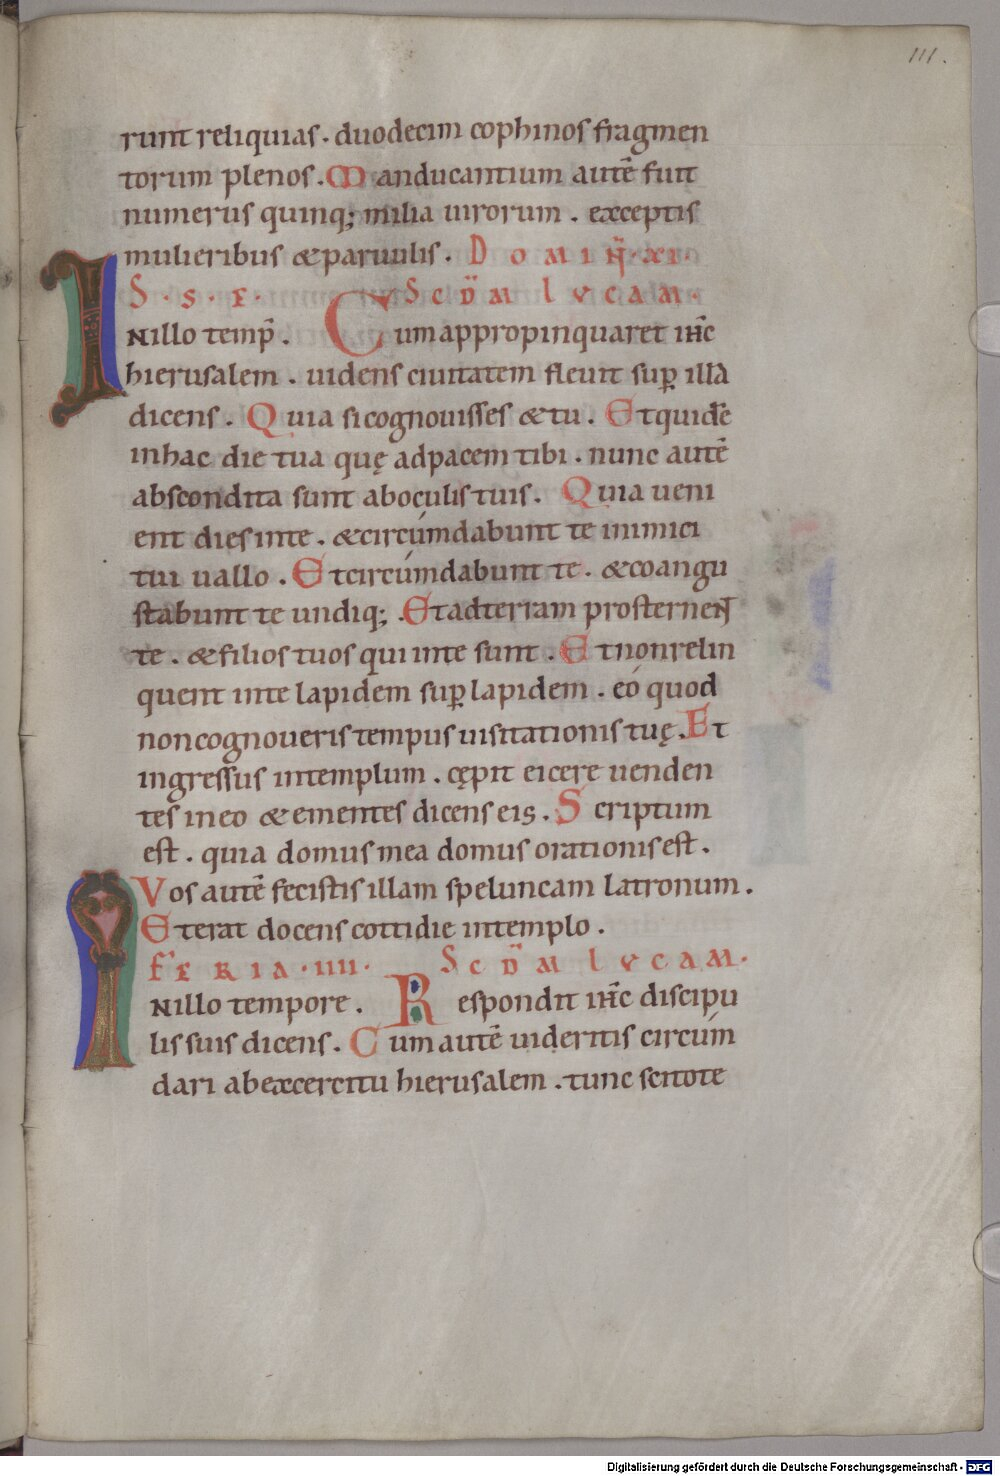 111.
runt reliquias. duodecim cophinos fragmen
torum plenos. Manducantium autē fuit
numerus quinq; milia uirorum. exceptis
mulieribus & paruulis. DOMIN̄. XI.
S. S. E. SCD̄M LVCAM.
INillo temp̄. Cum appropinquaret ih̄c
hierusalem. uidens ciuitatem fleuit sup̱ illā
dicens. Quia si cognouisses & tu. Et quidē
inhac die tua quę adpacem tibi. nunc autē
abscondita sunt aboculis tuis. Quia ueni
ent dies inte. & circúmdabunt te inimici
tui uallo. Et circúmdabunt te. & coangu
stabunt te undiq;. Et adterram prosternen̄
te. & filios tuos qui inte sunt. Et nonrelin
quent inte lapidem sup̱ lapidem. eó quod
noncognoueris tempus uisitationis tuę. Et
ingressus intemplum. cępit eicere uenden
tes in eo & ementes dicens eis. Scriptum
est. quia domus mea domus orationis est.
Vos autē fecistis illam speluncam latronum.
Et erat docens cottidie intemplo.
FERIA. IIII. SCD̄M LVCAM.
INillo tempore. Respondit ih̄c discipu
lis suis dicens. Cum autē uideritis circúm
dari abexcercitu hierusalem. tunc scitote
Digitalisierung gefördert durch die Deutsche Forschungsgemeinschaft - DFG